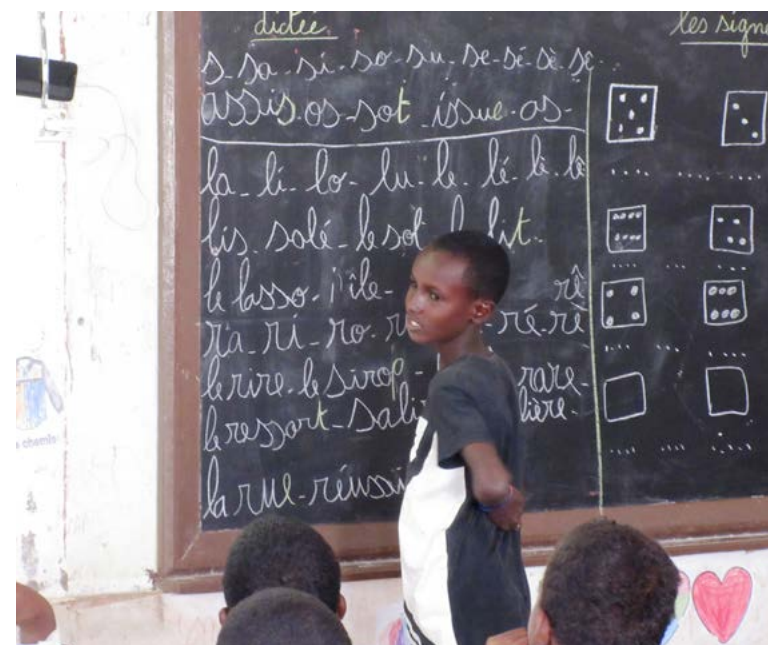 dictée.
s-sa-si-so-su-se-sé-sè-sê
assis-os-sot-issue-as-
la-li-lo-lu-le-lé-lè-lê
lis-salé-le sol-le lit.
le lasso-l'île- rê
ra-ri-ro- -ré-rè
le rire-le sirop- rare-
le ressort-
la rue-
les signe